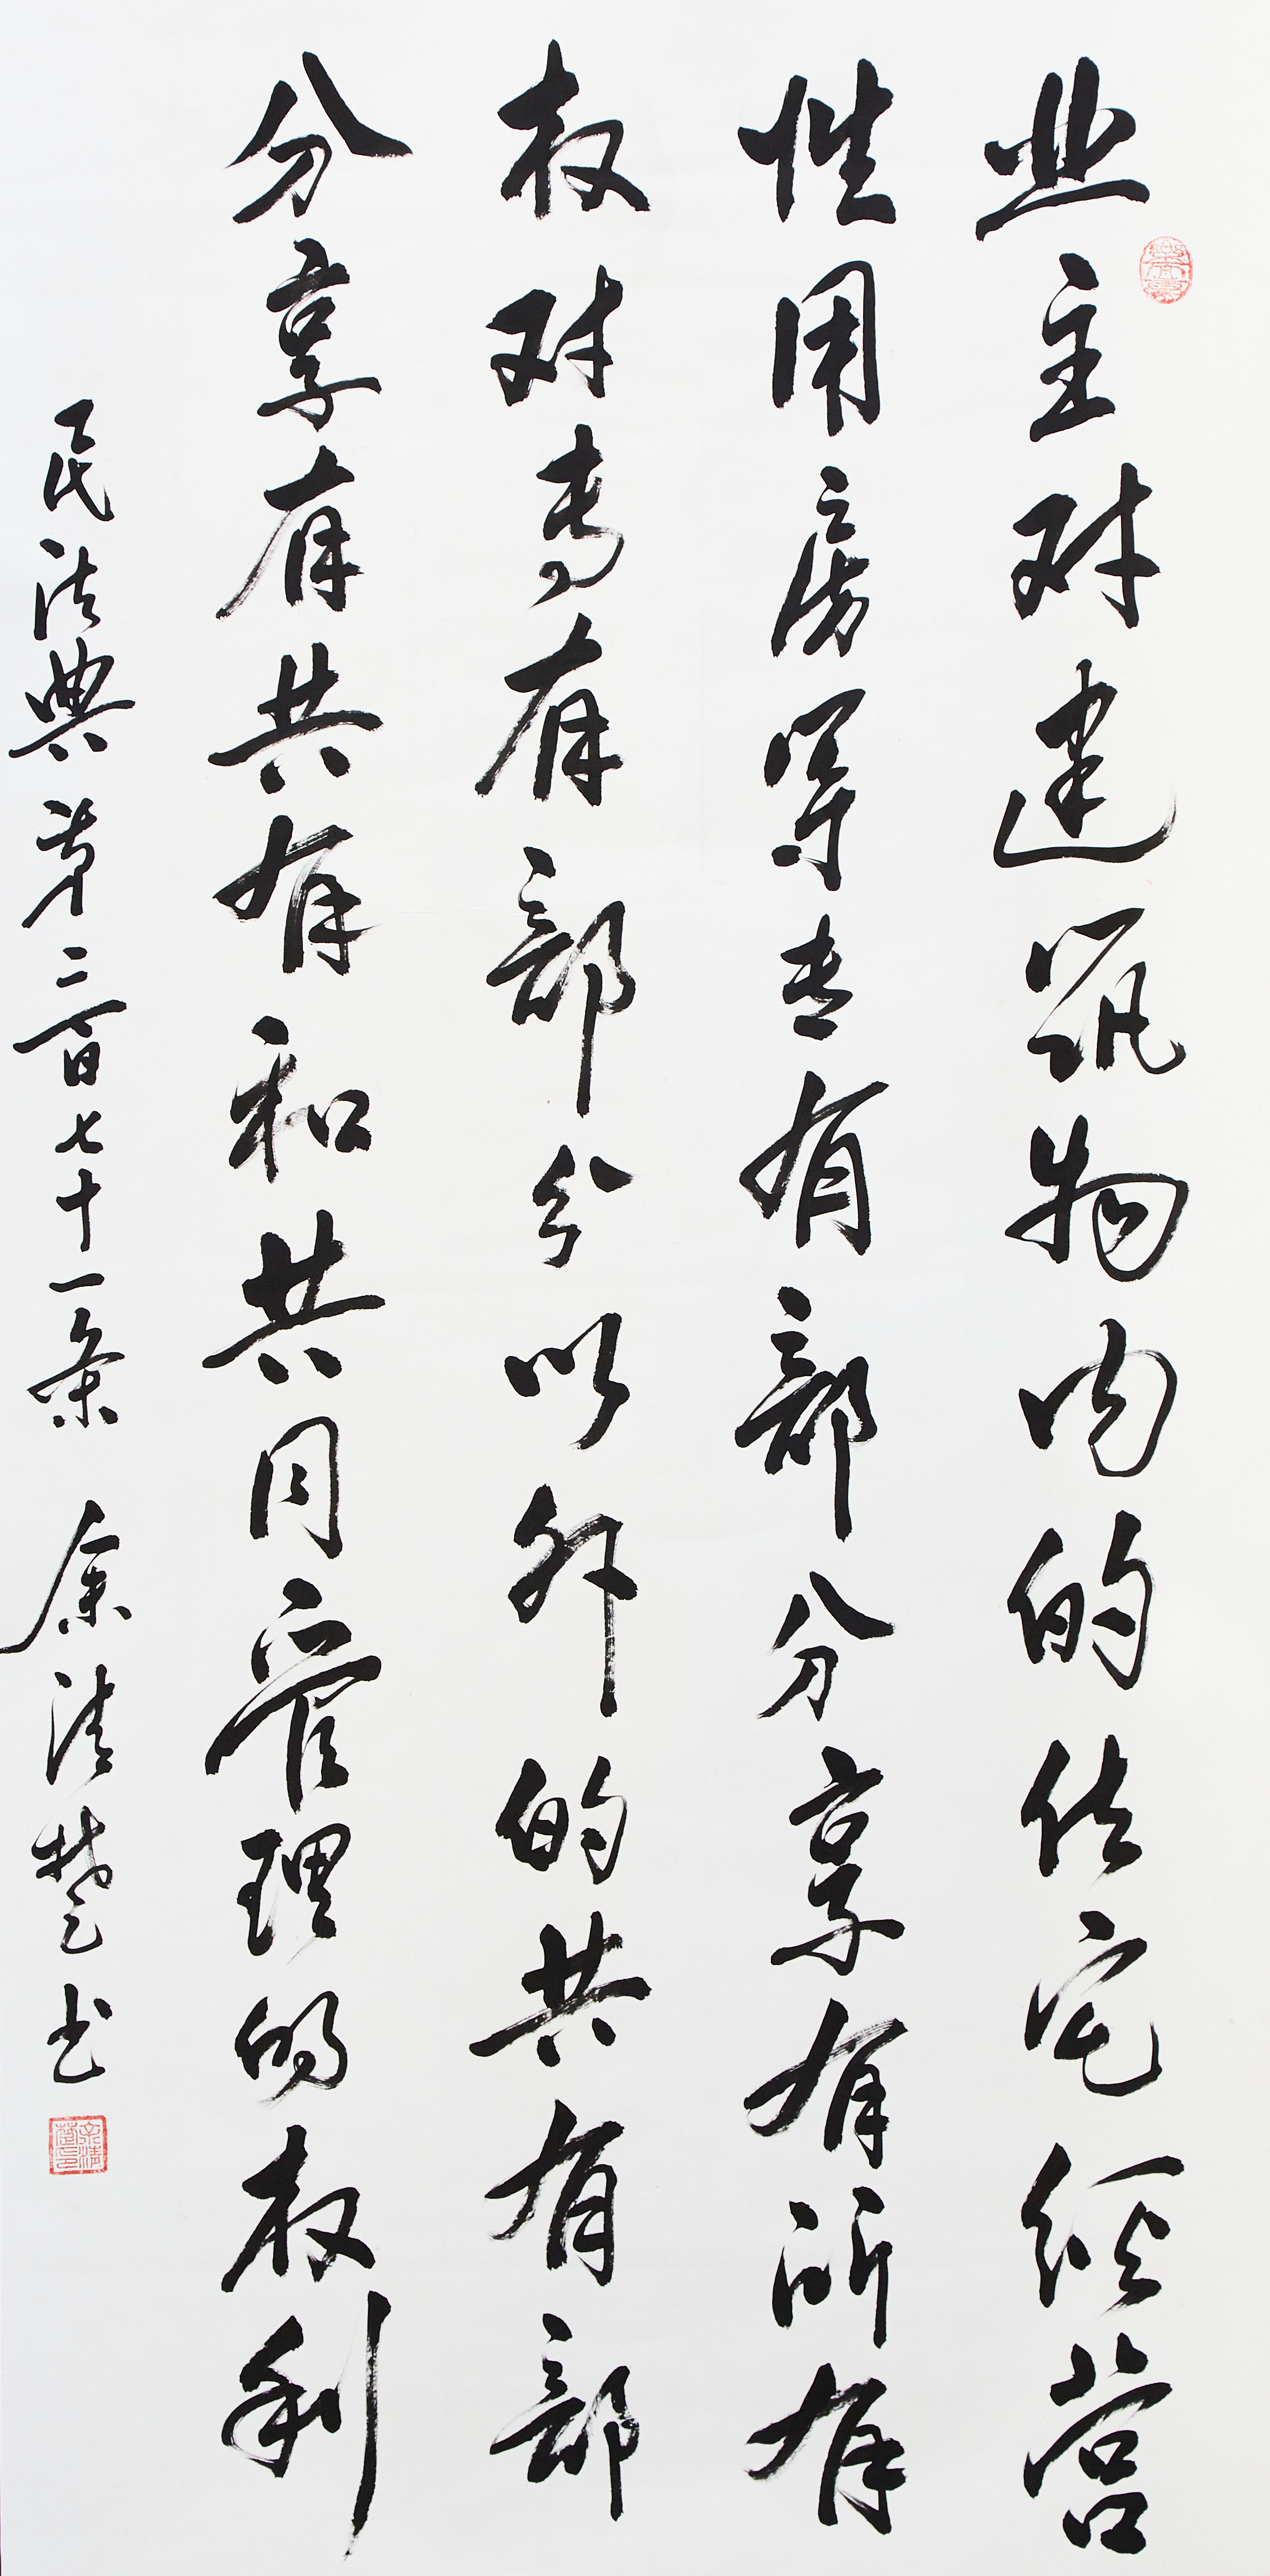 业主对建筑物内的住宅经营
性用房等专有部分享有所有
权对专有部分以外的共有部
分享有共有和共同管理的权利
民法典第二百七十一条 余清楚书